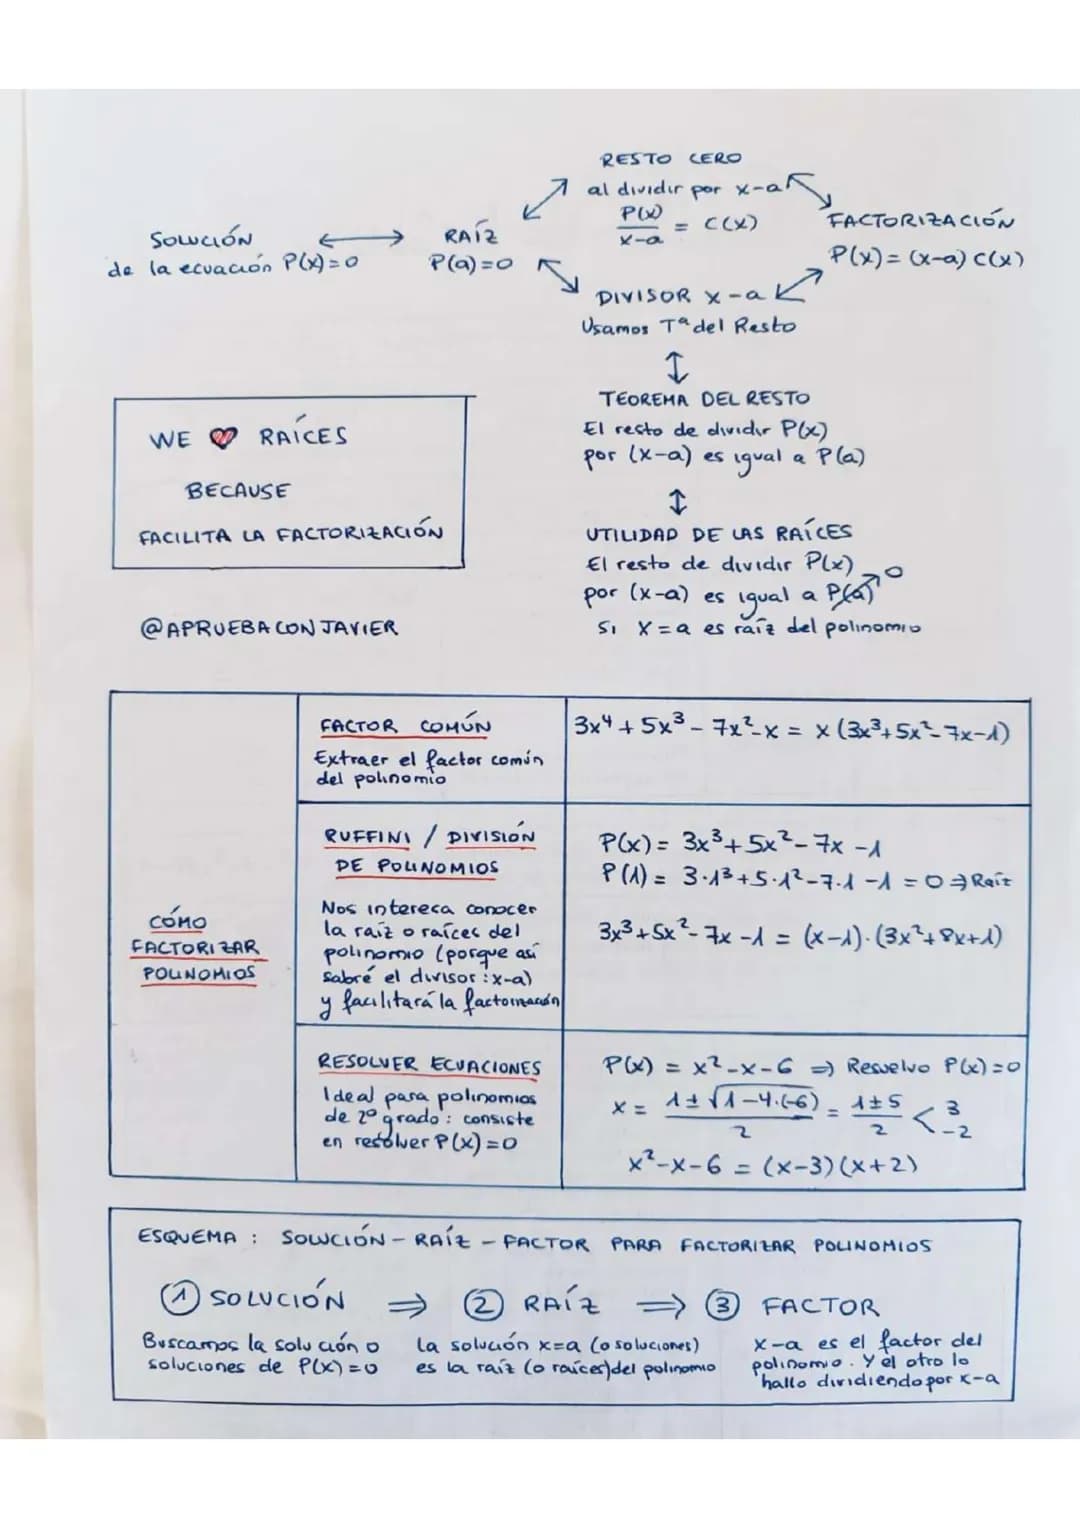 RESTO CERO
al dividir por x-a
P(x)/x-a = C(x)
FACTORIZACIÓN
P(x) = (x-a) C(x)
SOLUCIÓN
de la ecuación P(x)=0
RAÍZ
P(a)=0
DIVISOR x-a
Usamos Tª del Resto
TEOREMA DEL RESTO
El resto de dividir P(x)
por (x-a) es igual a P(a)
UTILIDAD DE LAS RAÍCES
El resto de dividir P(x)
por (x-a) es igual a P(a) 0
Si x=a es raíz del polinomio
WE ❤ RAÍCES
BECAUSE
FACILITA LA FACTORIZACIÓN
@APRUEBACONJAVIER
CÓMO
FACTORIZAR
POLINOMIOS
FACTOR COMÚN
Extraer el factor común
del polinomio
3x⁴ + 5x³ - 7x² - x = x (3x³ + 5x² - 7x - 1)
RUFFINI / DIVISIÓN
DE POLINOMIOS
Nos intereca conocer
la raíz o raíces del
polinomio (porque así
sabré el divisor : x-a)
y facilitará la factorización
P(x) = 3x³ + 5x² - 7x - 1
P(1) = 3·1³ + 5·1² - 7·1 - 1 = 0 ⇒ Raíz
3x³ + 5x² - 7x - 1 = (x-1)·(3x² + 8x + 1)
RESOLVER ECUACIONES
Ideal para polinomios
de 2º grado : consiste
en resolver P(x)=0
P(x) = x² - x - 6 ⇒ Resuelvo P(x)=0
x = 1±√1-4·(-6)/2 = 1±5/2 < 3 -2
x² - x - 6 = (x-3)(x+2)
ESQUEMA : SOLUCIÓN - RAÍZ - FACTOR PARA FACTORIZAR POLINOMIOS
① SOLUCIÓN ⇒ ② RAÍZ ⇒ ③ FACTOR
Buscamos la solución o
soluciones de P(x)=0
La solución x=a (o soluciones)
es la raíz (o raíces) del polinomio
x-a es el factor del
polinomio. Y el otro lo
hallo dividiendo por x-a